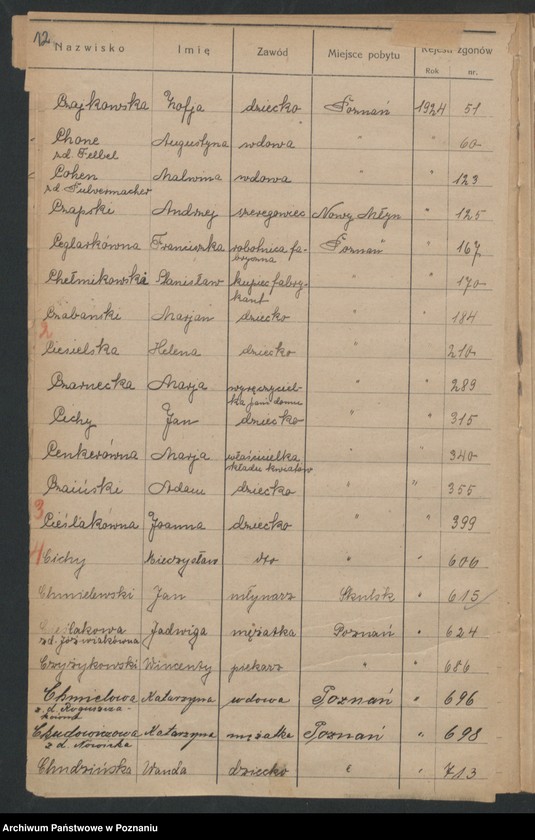 12.
Nazwisko Imię Zawód Miejsce pobytu Rejestr zgonów
Rok nr.
Czajkowska Zofja dziecko Poznań 1924 51
Chone Augustyna wdowa " " 60
zd. Felbel
Cohen Malwina wdowa " " 123
zd. Fulvermacher
Czapski Andrzej szeregowiec Nowy Młyn " 125
Ceglarkówna Franciszka robotnica fa- Poznań " 167
bryczna
Chełmikowski Stanisław kupiec fabry- " " 170
kant
Czabański Marjan dziecko " " 184
2
Ciesielska Helena dziecko 210
Czarnecka Marja wyręczyciel- " " 289
ka pani domu
Cichy Jan dziecko " " 315
Cenkerówna Marja właścicielka " " 340
składu kwiatów
Adam dziecko " " 355
3
Cieślakówna Joanna dziecko " " 399
4
Cichy Mieczysław dto " " 606
Chmielewski Jan młynarz Skulsk " 615
Jadwiga mężatka Poznań " 624
zd. Jóźwiakówna
Czyżykowski Wincenty piekarz " " 686
Chmielowa Katarzyna wdowa Poznań " 696
z. d.
Chudowiczowa Katarzyna mężatka Poznań " 698
z d. Nowicka
Chudzińska Wanda dziecko " " 713
Archiwum Państwowe w Poznaniu